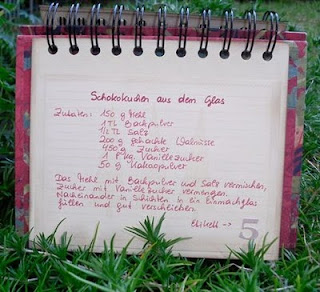 Schokokuchen aus dem Glas
Zutaten: 150 g Mehl
1 TL Backpulver
1/2 TL Salz
200 g gehackte Walnüsse
450 g Zucker
1 P kg. Vanillezucker
50 g Kakaopulver
Das Mehl mit Backpulver und Salz vermischen,
Zucker mit Vanillezucker vermengen.
Nacheinander in Schichten in ein Einmachglas
füllen und gut verschließen.
Etikett ->
5